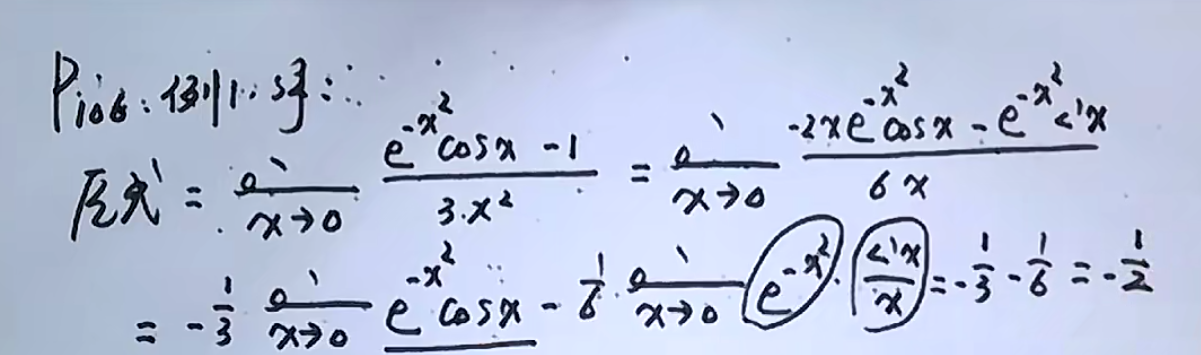 P106: 例1.5子:
原式 = lim x→0 (e^{-x^2}cosx - 1)/(3·x^2) = lim x→0 (-2xe^{-x^2}cosx - e^{-x^2}sinx)/(6x)
= -1/3 lim x→0 e^{-x^2}cosx - 1/6 · lim x→0 e^{-x^2} · sinx/x = -1/3 - 1/6 = -1/2